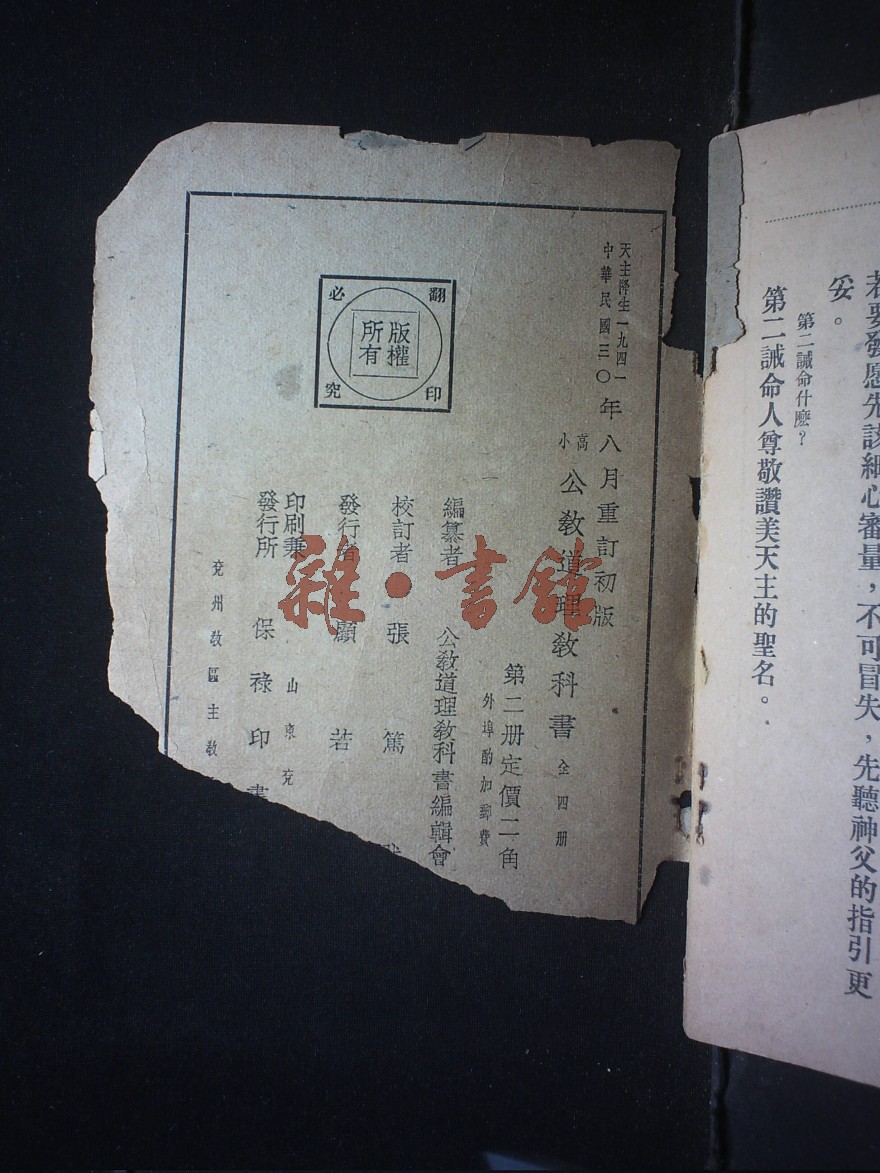 若要發愿先該細心審量，不可冒失，先聽神父的指引更
妥。
第二誡命什麽？
第二誡命人尊敬讚美天主的聖名。
天主降生一九四一
中華民國三〇年八月重訂初版
高小 公教道理教科書 全四册
第二册定價二角
外埠酌加郵費
編纂者 公教道理教科書編輯會
校訂者 張篤
發行者 顧若
印刷兼
發行所 保祿印書
山東兗
兗州教區主教
翻印必究
版權所有
雜·書館